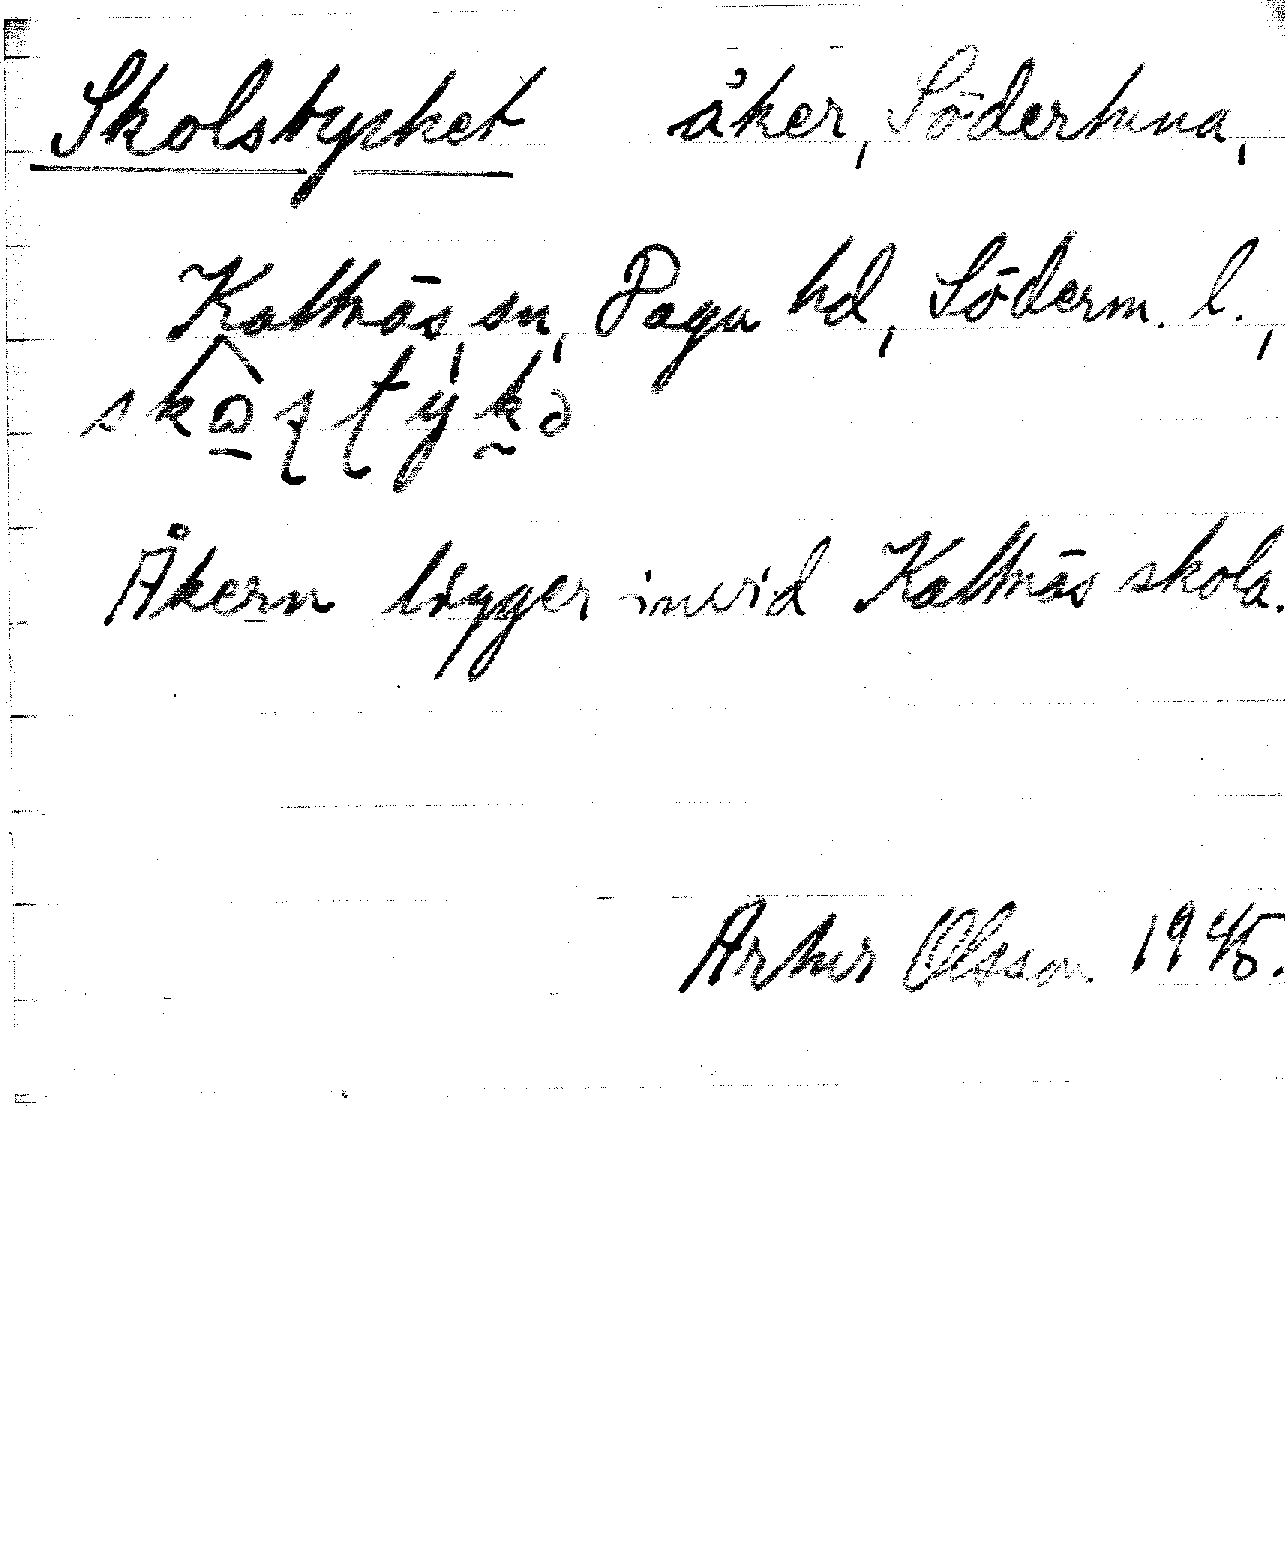 Skolstycket åker, Södertuna,
Kattnäs sn, Daga hd, Söderm. l.,
Åkern ligger invid Kattnäs skola.
Artur Olsson. 1945.